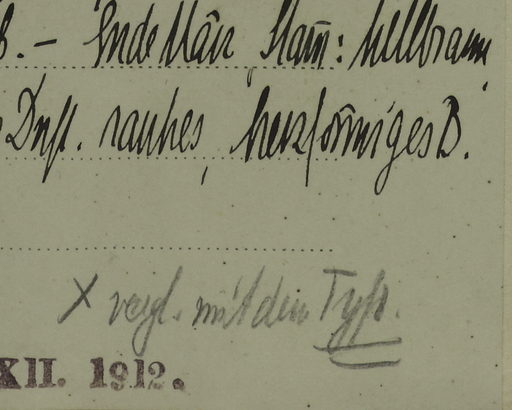 B. – Ende März Stam̄: hellbraun,
Duft. rauhes, herzförmiges B.
x vergl. mit dem Typs.
XII. 1912.